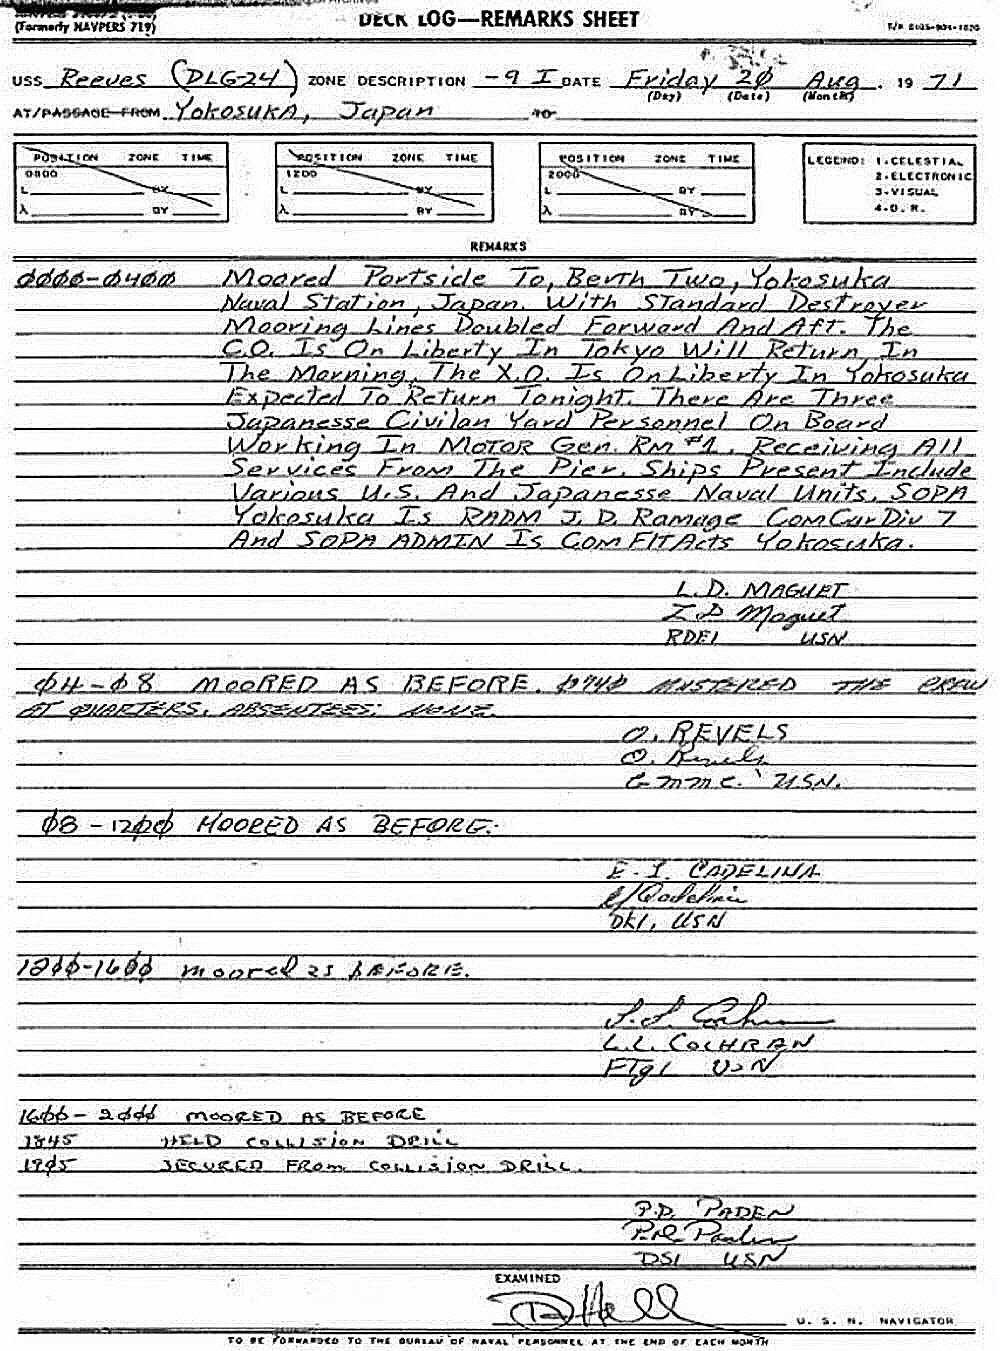 DECK LOG—REMARKS SHEET
(Formerly NAVPERS 719)
USS Reeves (DLG-24) ZONE DESCRIPTION -9 I DATE Friday 20 Aug. 19 71
(Day) (Date) (Month)
AT/PASSAGE FROM Yokosuka, Japan TO
POSITION ZONE TIME
0800
L BY
λ BY
POSITION ZONE TIME
1200
L BY
λ BY
POSITION ZONE TIME
2000
L BY
λ BY
LEGEND: 1-CELESTIAL
2-ELECTRONIC
3-VISUAL
4-D.R.
REMARKS
0000-0400 Moored Portside To, Berth Two, Yokosuka
Naval Station, Japan. With Standard Destroyer
Mooring Lines Doubled Forward And Aft. The
C.O. Is On Liberty In Tokyo Will Return In
The Morning, The X.O. Is On Liberty In Yokosuka
Expected To Return Tonight. There Are Three
Japanesse Civilan Yard Personnel On Board
Working In Motor Gen. Rm #1. Receiving All
Services From The Pier. Ships Present Include
Various U.S. And Japanesse Naval Units. SOPA
Yokosuka Is RADM J. D. Ramage ComCarDiv 7
And SOPA ADMIN Is Com FltActs Yokosuka.
L.D. MAGUET
L D Maguet
RDE1 USN
04-08 MOORED AS BEFORE. 0740 MUSTERED THE CREW
AT QUARTERS. ABSENTEES: NONE.
O. REVELS
O. Revels
GMMC. USN.
08-1200 MOORED AS BEFORE.
E. I. CADELINA
DK1, USN
1200-1600 moored as BEFORE.
L.L. COCHRAN
FTG1 USN
1600-2000 MOORED AS BEFORE
1845 HELD COLLISION DRILL
1905 SECURED FROM COLLISION DRILL.
P.D. PADEN
P.D. Paden
DS1 USN
EXAMINED
U. S. N. NAVIGATOR
TO BE FORWARDED TO THE BUREAU OF NAVAL PERSONNEL AT THE END OF EACH MONTH